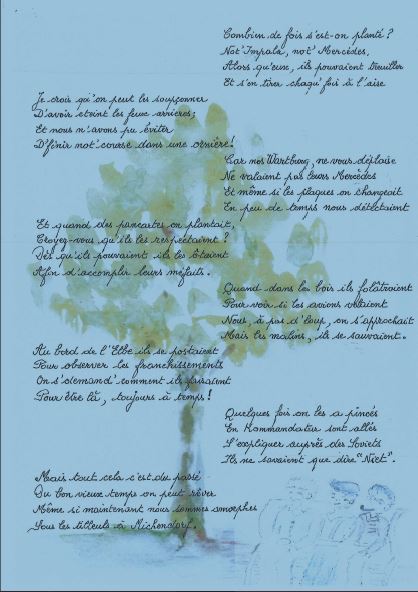 Combien de fois s'est-on planté ?
Not' Impala, not' Mercédès,
Alors qu'eux, ils pouvaient treuiller
Et s'en tirer chaqu' fois à l'aise
Je crois qu'on peut les soupçonner
D'avoir éteint les feux arrières;
Et nous n'avons pu éviter
D'finir not' course dans une ornière !
Car nos Wartburg, ne vous déplaise
Ne valaient pas leurs Mercédès
Et même si les plaques on changeait
En peu de temps nous détectaient
Et quand des pancartes on plantait,
Croyez-vous qu'ils les respectaient ?
Dès qu'ils pouvaient ils les ôtaient
Afin d'accomplir leurs méfaits.
Quand dans les bois ils folâtraient
Pour voir si les avions volaient
Nous, à pas d'loup, on s'approchait
Mais les malins, ils se sauvaient.
Au bord de l'Elbe ils se postaient
Pour observer les franchissements
On s'demand' comment ils faisaient
Pour être là, toujours à temps !
Quelques fois on les a pincés
En Kommandatur sont allés
S'expliquer auprès des Soviets
Ils ne savaient que dire "Niet".
Mais tout cela c'est du passé
Du bon vieux temps on peut rêver
Même si maintenant nous sommes
Sous les tilleuls à Michendorf.